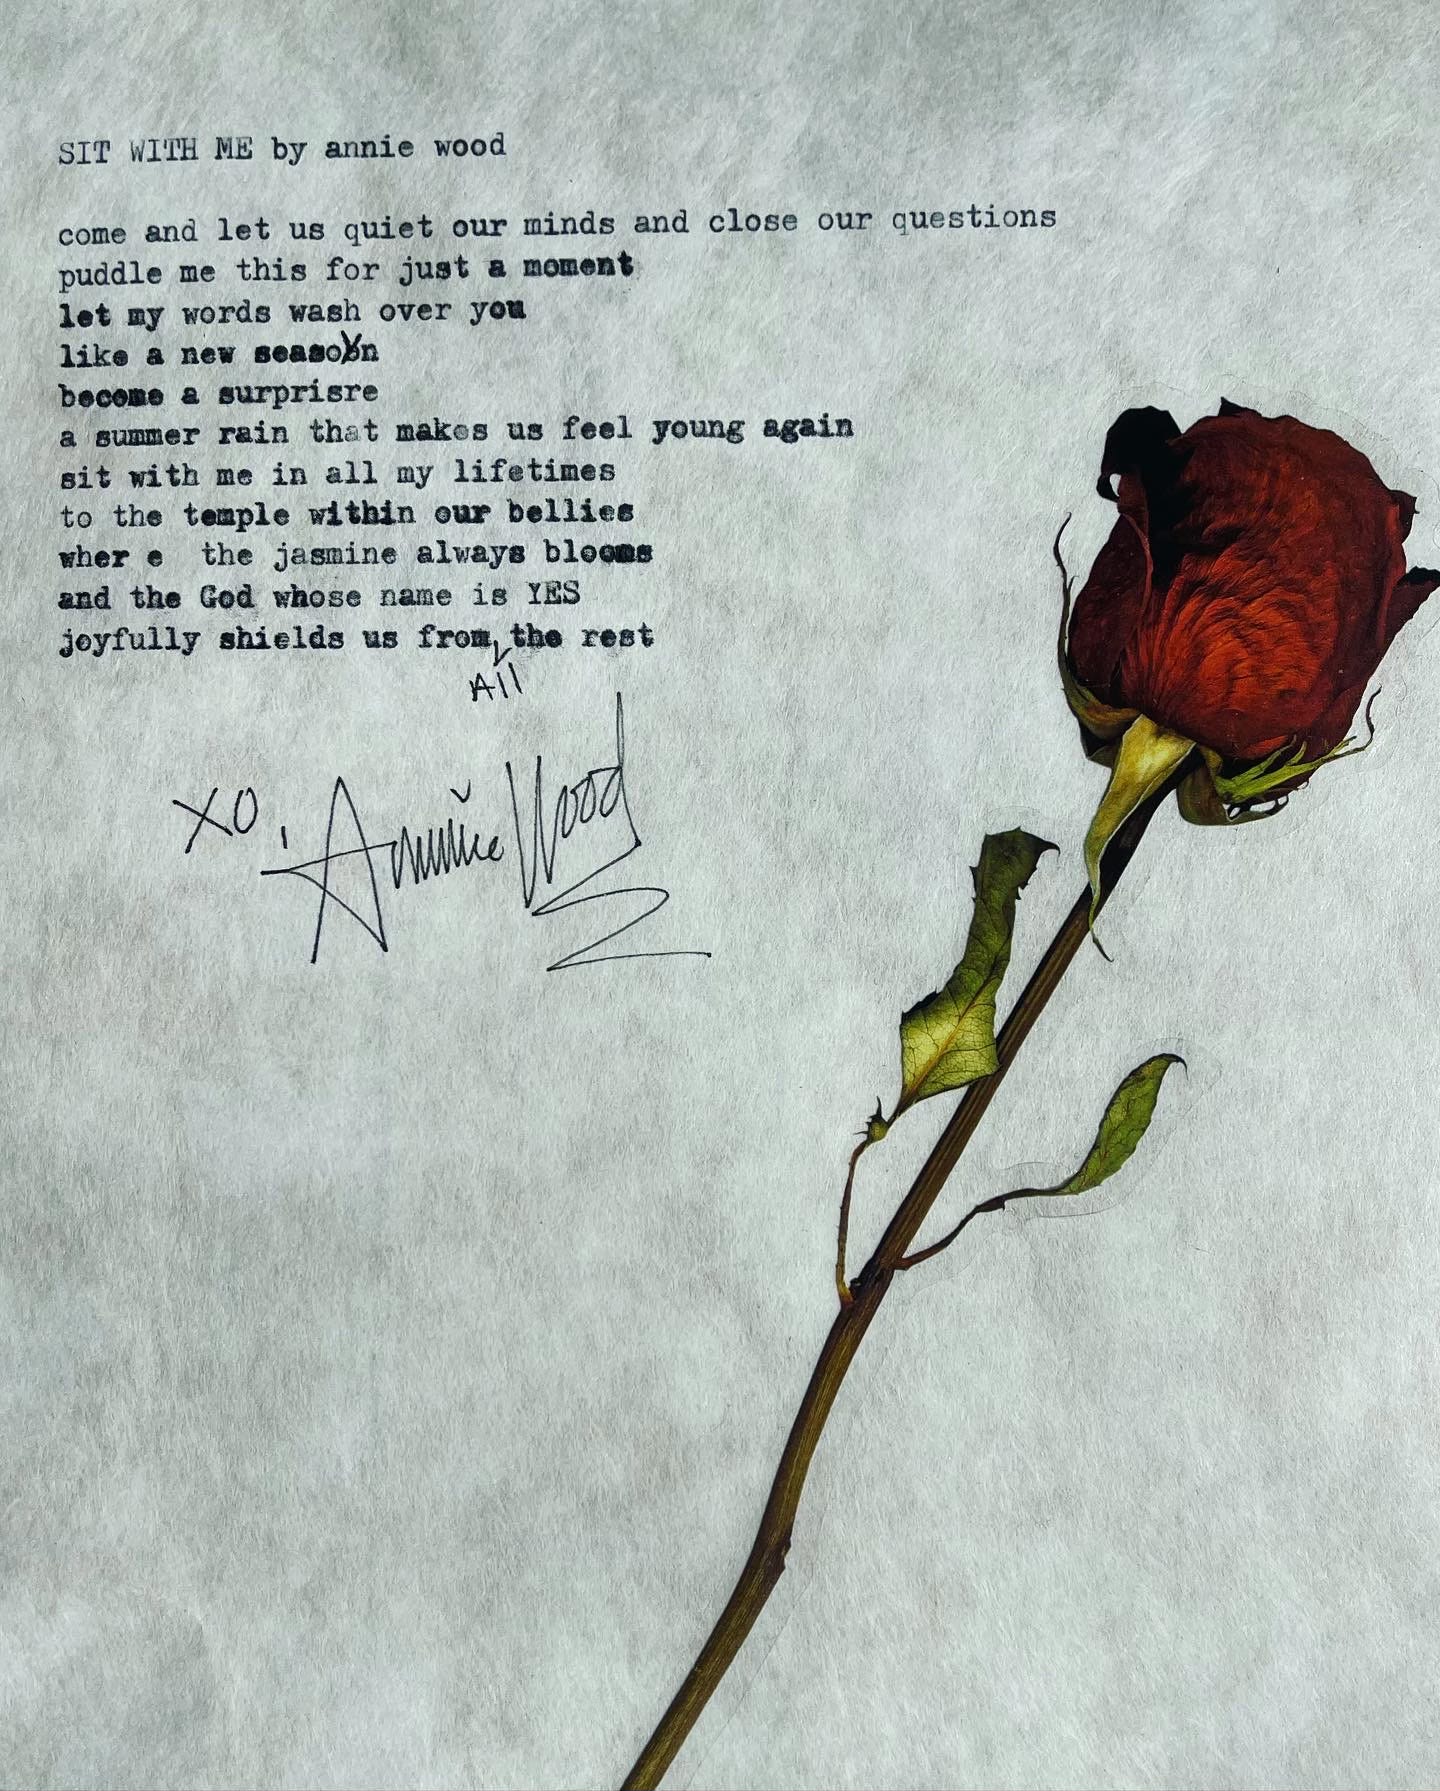 SIT WITH ME by annie wood
come and let us quiet our minds and close our questions
puddle me this for just a moment
let my words wash over you
like a new season
become a surprisre
a summer rain that makes us feel young again
sit with me in all my lifetimes
to the temple within our bellies
wher e  the jasmine always blooms
and the God whose name is YES
joyfully shields us from All the rest
XO, Annie Wood